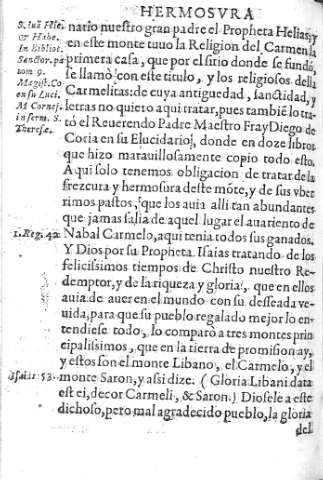 HERMOSVRA
nario nuestro gran padre el Propheta Helias, y
en este monte tuuo la Religion del Carmen la
primera casa, que por el sitio donde se fundó,
se llamò con este titulo, y los religiosos della
Carmelitas: de cuya antiguedad, sanctidad, y
letras no quiero aqui tratar, pues tambiẽ lo tra-
tó el Reuerendo Padre Maestro Fray Diego de
Coria en su Elucidario, donde en doze libros
que hizo marauillosamente copio todo esto.
Aqui solo tenemos obligacion de tratar de la
frezcura y hermosura deste mõte, y de sus vber
rimos pastos, que los auia alli tan abundantes
que jamas salia de aquel lugar el auariento de
Nabal Carmelo, aqui tenia todos sus ganados.
Y Dios por su Propheta Isaias tratando de los
felicissimos tiempos de Christo nuestro Re-
demptor, y de la riqueza y gloria, que en ellos
auia de auer en el mundo con su desseada ve-
uida, para que su pueblo regalado mejor lo en-
tendiese todo, lo comparò a tres montes prin
cipalissimos, que en la tierra de promision ay,
y estos son el monte Libano, el Carmelo, y el
monte Saron, y assi dize. (Gloria Libani data
est ei, decor Carmeli, & Saron.) Diosele a este
dichoso, pero mal agradecido pueblo, la gloria
del
& Habe.
In Bibliot.
Sanctor. pa
tom 9.
Magist. Co
en su Luci.
M Cornej.
in serm. S.
Theresæ.
1. Reg. 42.
Isai. 53.